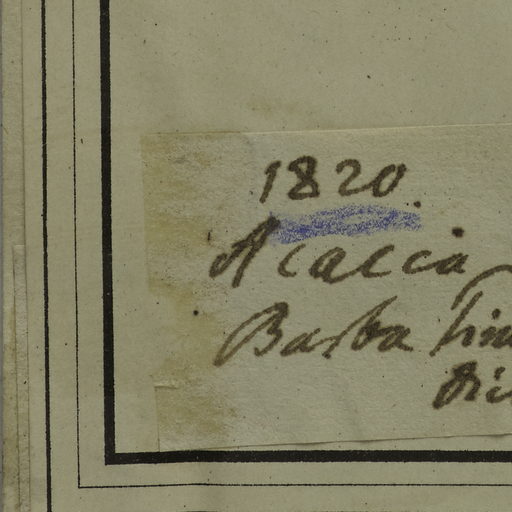 1820.
Acaccia
Barba tim